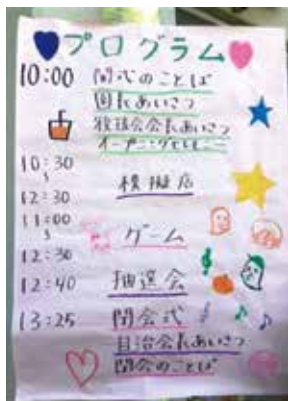 プログラム
10:00 開式のことば
園長あいさつ
牧雄会会長あいさつ
オープニングセレモニー
10:30
〜
12:30
模擬店
11:00
〜
12:30
ゲーム
12:40 抽選会
13:25 閉会式
自治会長あいさつ
閉会のことば